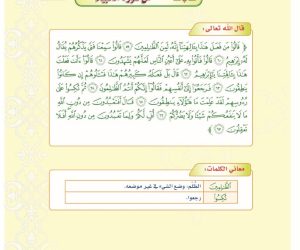 قال الله تعالى:
قَالُوا۟ مَن فَعَلَ هَٰذَا بِـَٔالِهَتِنَآ إِنَّهُۥ لَمِنَ ٱلظَّٰلِمِينَ ۝ قَالُوا۟ سَمِعْنَا فَتًى يَذْكُرُهُمْ يُقَالُ
لَهُۥٓ إِبْرَٰهِيمُ ۝ قَالُوا۟ فَأْتُوا۟ بِهِۦ عَلَىٰٓ أَعْيُنِ ٱلنَّاسِ لَعَلَّهُمْ يَشْهَدُونَ ۝ قَالُوٓا۟ ءَأَنتَ فَعَلْتَ
هَٰذَا بِـَٔالِهَتِنَا يَٰٓإِبْرَٰهِيمُ ۝ قَالَ بَلْ فَعَلَهُۥ كَبِيرُهُمْ هَٰذَا فَسْـَٔلُوهُمْ إِن كَانُوا۟
يَنطِقُونَ ۝ فَرَجَعُوٓا۟ إِلَىٰٓ أَنفُسِهِمْ فَقَالُوٓا۟ إِنَّكُمْ أَنتُمُ ٱلظَّٰلِمُونَ ۝ ثُمَّ نُكِسُوا۟ عَلَىٰ
رُءُوسِهِمْ لَقَدْ عَلِمْتَ مَا هَٰٓؤُلَآءِ يَنطِقُونَ ۝ قَالَ أَفَتَعْبُدُونَ مِن دُونِ ٱللَّهِ
مَا لَا يَنفَعُكُمْ شَيْـًٔا وَلَا يَضُرُّكُمْ ۝ أُفٍّ لَّكُمْ وَلِمَا تَعْبُدُونَ مِن دُونِ ٱللَّهِ أَفَلَا
تَعْقِلُونَ ۝
معاني الكلمات:
ٱلظَّٰلِمِينَ الظلم، وضع الشيء في غير موضعه.
نُكِسُوا۟ رجعوا.